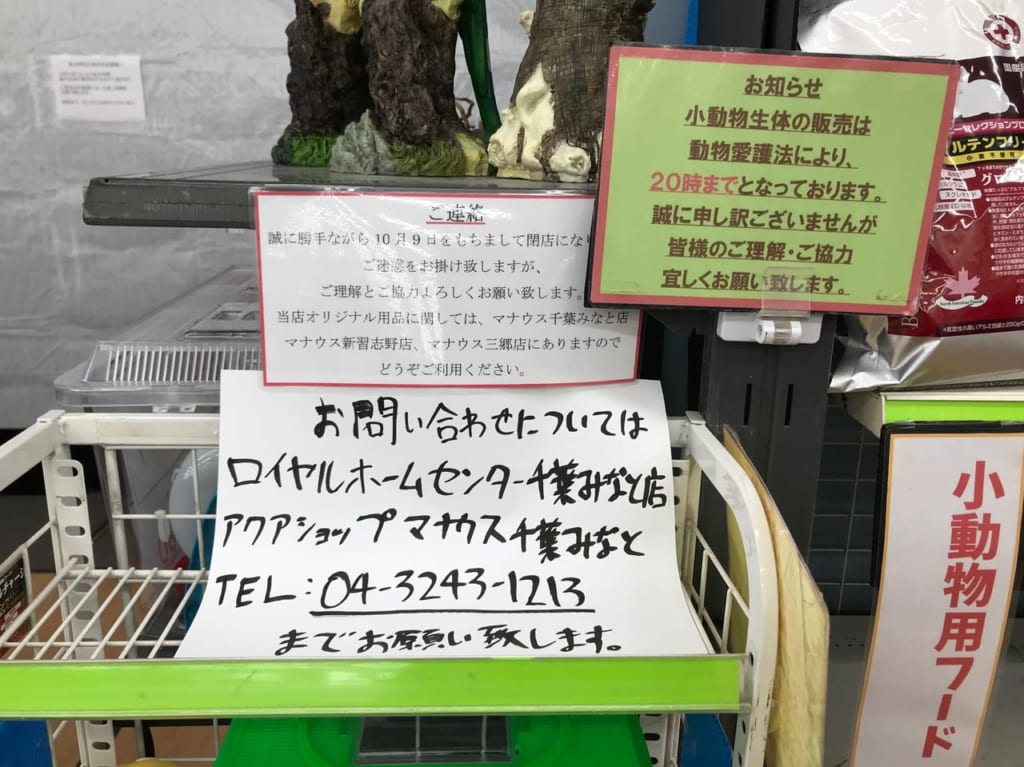 お知らせ
小動物生体の販売は
動物愛護法により、
20時までとなっております。
誠に申し訳ございませんが
皆様のご理解・ご協力
宜しくお願い致します。
ご連絡
誠に勝手ながら10月9日をもちまして閉店にな
ご迷惑をお掛け致しますが、
ご理解とご協力よろしくお願い致します。
当店オリジナル用品に関しては、マナウス千葉みなと店
マナウス新習志野店、マナウス三郷店にありますので
どうぞご利用ください。
お問い合わせについては
ロイヤルホームセンター千葉みなと店
アクアショップマナウス千葉みなと
TEL:04-3243-1213
までお願い致します。
小動物用フード
国産
セレクションプロ
ルテンフリー
グロ